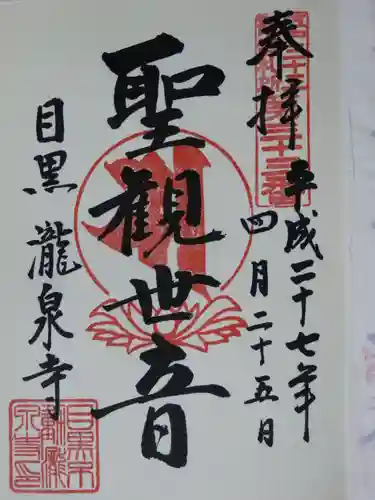 奉拝
平成二十七年
四月二十五日
聖観世音
目黒瀧泉寺